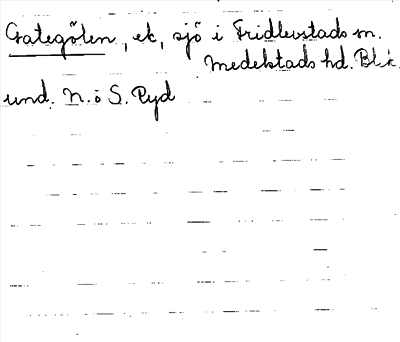 Grategölen, ek, sjö i Fridlevstads sn.
Medelstads hd. Blk.
und. N. o S. Ryd